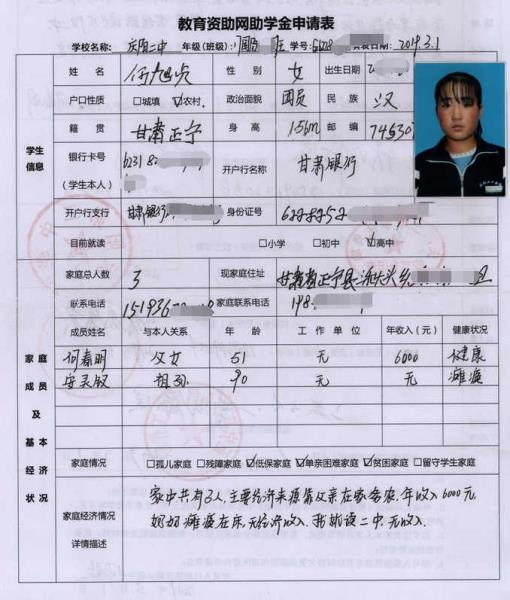 教育资助网助学金申请表
学校名称: 庆阳二中 年级(班级): 学号: 日期: 2019.3.1
姓 名 何 贞 性 别 女 出生日期
户口性质 □城填 ☑农村 政治面貌 团员 民 族 汉
籍 贯 甘肃正宁 身 高 1.56m 邮 编 74530
学生
信息
银行卡号
(学生本人)
6231 8 开户行名称 甘肃银行
开户行支行 甘肃银行 身份证号
目前就读 □小学 □初中 ☑高中
家庭总人数 3 现家庭住址 甘肃省正宁县
联系电话 151936 家庭联系电话 198
成员姓名 与本人关系 年 龄 工 作 单 位 年收入(元) 健康状况
何春明 父女 51 无 6000 健康
安灵叙 祖孙 90 无 无 瘫痪
家 庭
成 员
及
基 本
经 济
状 况
家庭情况 □孤儿家庭 □残障家庭 ☑低保家庭 ☑单亲困难家庭 ☑贫困家庭 □留守学生家庭
家庭经济情况
详情描述
家中共有3人,主要经济来源靠父亲在家务农,年收入6000元
奶奶瘫痪在床,无经济收入,我就读二中,无收入.